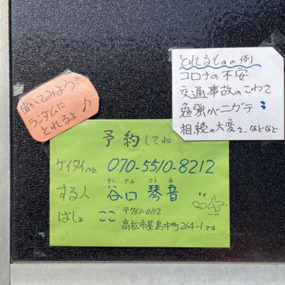 聞いてみよう
ランダムに
とれるよ♪
とれるもの(例)
コロナの不安
交通事故のこわさ
勉強がニガテ
相続の大変さ、などなど
予約してね
ケイタイNo. 070-5510-8212
タニ グチ コト ネ
する人 谷口 琴音
ばしょ ここ 〒761-0112
高松市屋島中町264-1